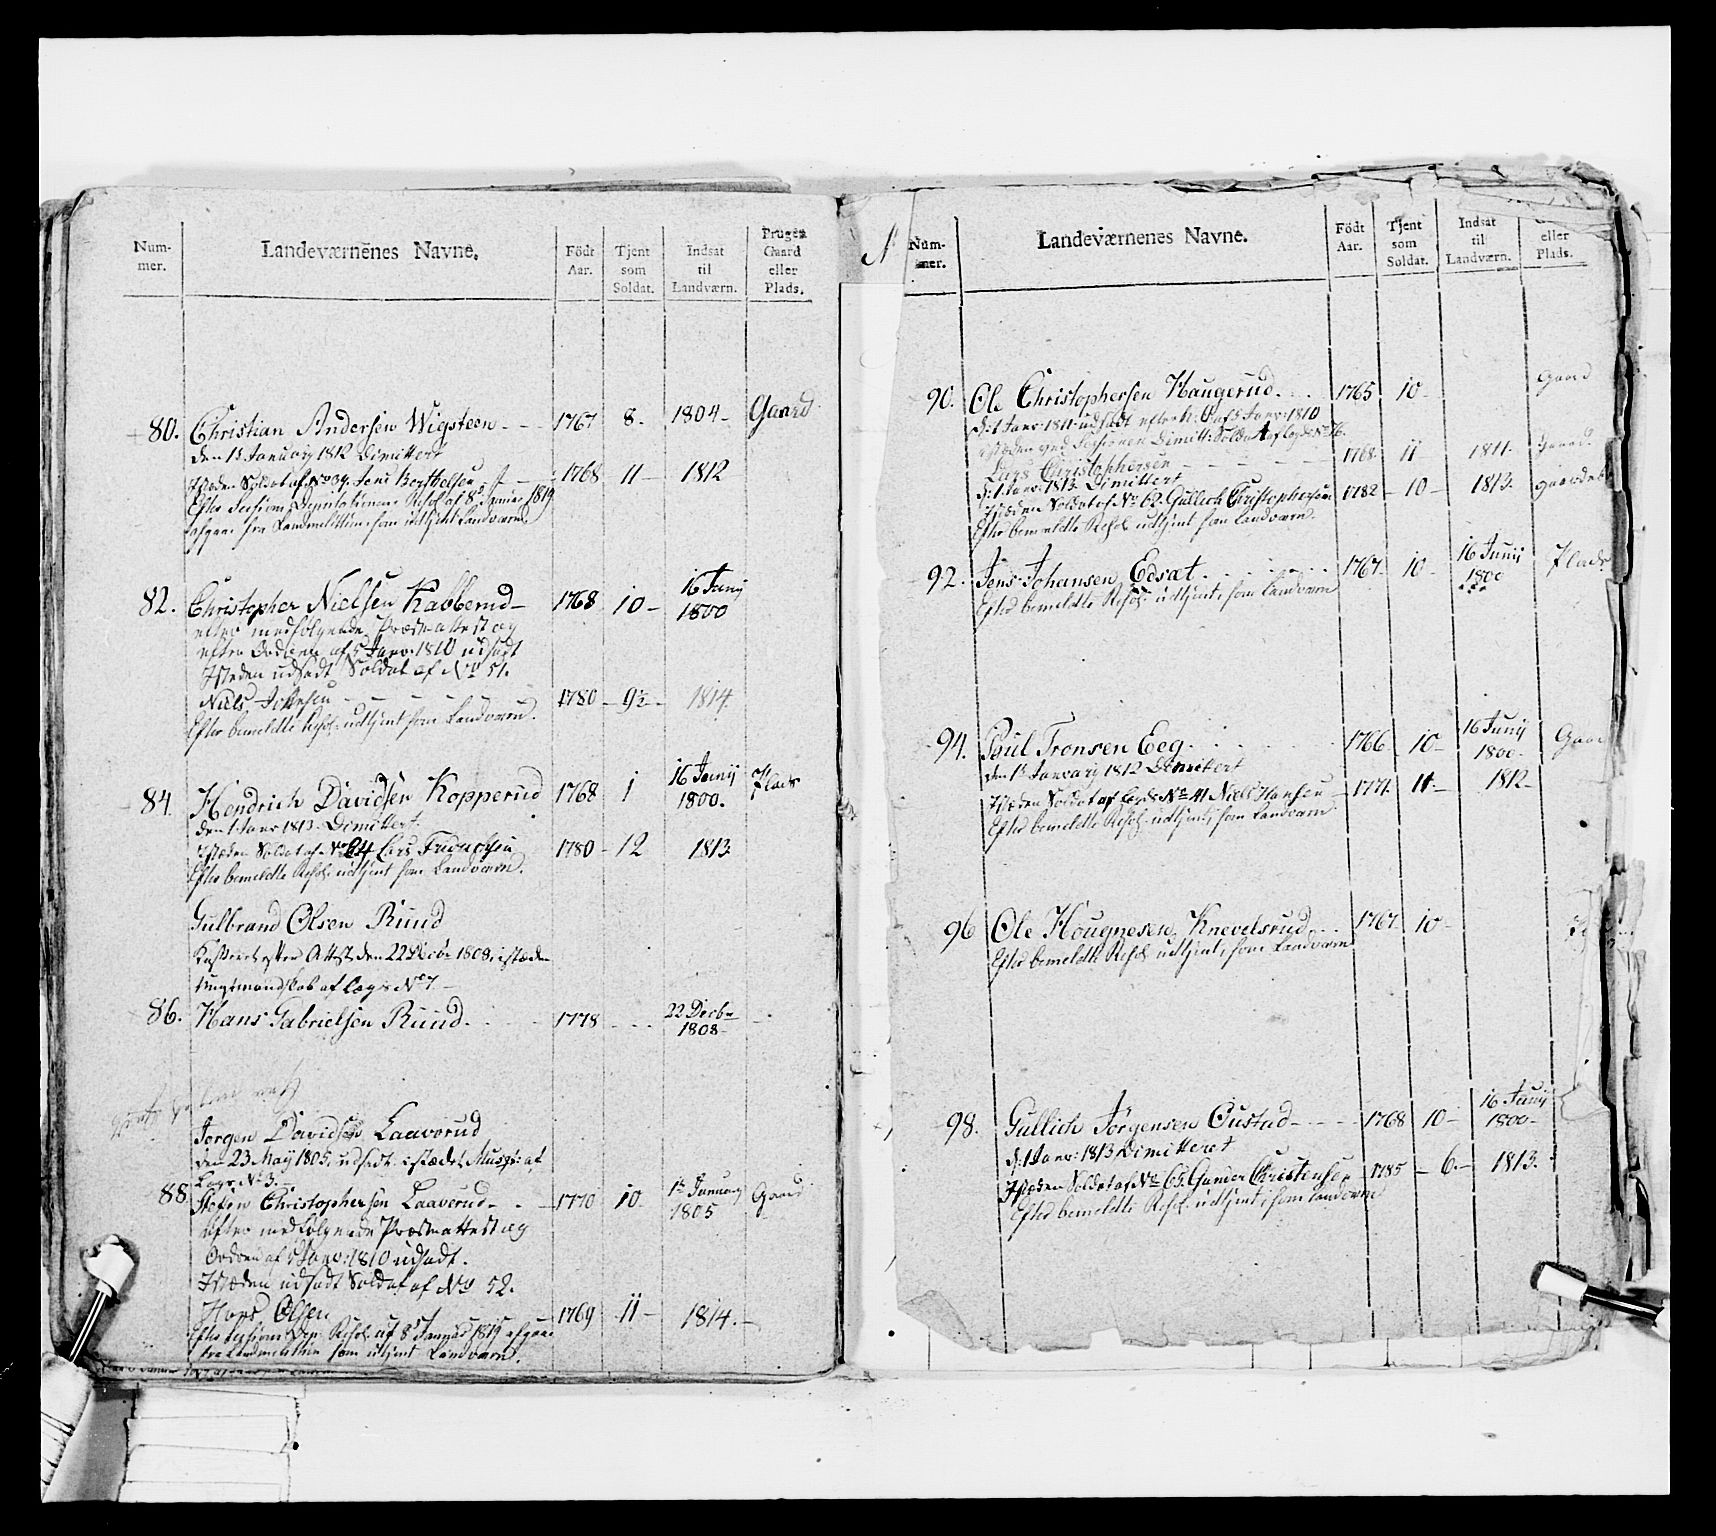 Num-
mer.
Landeværnenes Navne.
Födt
Aar.
Tjent
som
Soldat.
Indsat
til
Landværn.
Bruger
Gaard
eller
Plads.
80. Christian Andersen Wigsteen - - 1767 8. 1804 - Gaard
den 1ste January 1812 Dimittert
Isteden Soldat af No 39. Jens Berthelsen 1768 11 - 1812
Efter Sessions Deputationens Resol: af 8de Januar 1819
afgaar fra Landmilitien som udtient Landværn.
82. Christopher Nielsen Kabberud - 1768 10 - 16 Junij
1800
efter medfølgende Præsteattest og
efter Ordren af 5 Janr: 1810 udsadt
Isteden udsadt Soldat af No 51.
Niels Johnsen - - - 1780 - 9½ - 1814.
Efter bemeldte Resol: udtjent som Landværn.
84. Hendrich Davidsen Kopperud 1768 1 16 Junij
1800. Plads
den 1 Janr 1813. Dimittert.
Isteden Soldat af No 64 Lars 1780 - 12 1813.
Efter bemeldte Resol: udtjent som Landværn.
Gulbrand Olsen Ruud
Kasseret efter Attest den 22 Decbr 1808, isteden
ungtmandskab af Lægs No 7 -
86. Hans Gabrielsen Ruud. . . . 1778 - - - 22 Decbr
1808 -
Jørgen Davidsen Laaverud
den 23 May 1805, udsadt istedet Musqt: af
Lægs No 3. -
88. Stefen Christophersen Laaverud - . - 1770 10 - 1ste January
1805 Gaard
efter medfølgende Præsteattest og
Ordren af 5 Janr: 1810 udsadt.
Isteden udsadt Soldat af No 52.
Hans Olsen 1769 11 - 1814. -
Efter Sessions Dep: Resol: af 8de Januar 1819 afgaar
fra Landmilitien som udtient Landværn.
Num-
mer.
Landeværnenes Navne.
Födt
Aar.
Tjent
som
Soldat.
Indsat
til
Landværn.
eller
Plads.
90. Ole Christophersen Haugerud. . . 1765 10 - Gaard
d: 1 Janr: 1811 udsadt efter Ordr: af 5 Janr: 1810
isteden ved Sessionen Dimitt: Soldat af Lægd No 76.
Lars Christophersen - - - - 1768 11 1811. Gaard.
d: 1 Janr: 1813 Dimittert
Isteden Soldat af No 62. Gullich Christophersen 1782 - 10 - 1813.
Efter bemeldte Resol: udtjent som Landværn.
92. Jens Johansen Eesæt. . . . . 1767. 10 - 16 Junij
1800 Plads
Efter bemeldte Resol: udtjent, som Landværn
94. Poul Tronsen Eeg. . . . . 1766 10 - 16 Junij
1800 - Gaar
den 1ste January 1812 Dimittert
Isteden Soldat af Lægds No 41 Niels Hansen - 1771. 11 - 1812 -
Efter bemeldte Resol: udtjent, som Landværn
96 Ole Hougnesen Knevelsrud . . 1767. 10 -
Efter bemeldte Resol: udtjent, som Landværn
98. Gullich Jørgensen Oustad - - - 1768 10 - 16 Junij
1800 -
d: 1 Janr: 1813 Dimitteret
Isteden Soldat af No 65. Gunder Christensen - 1785 - 6. - 1813.
Efter bemeldte Resol: udtjent, som Landværn